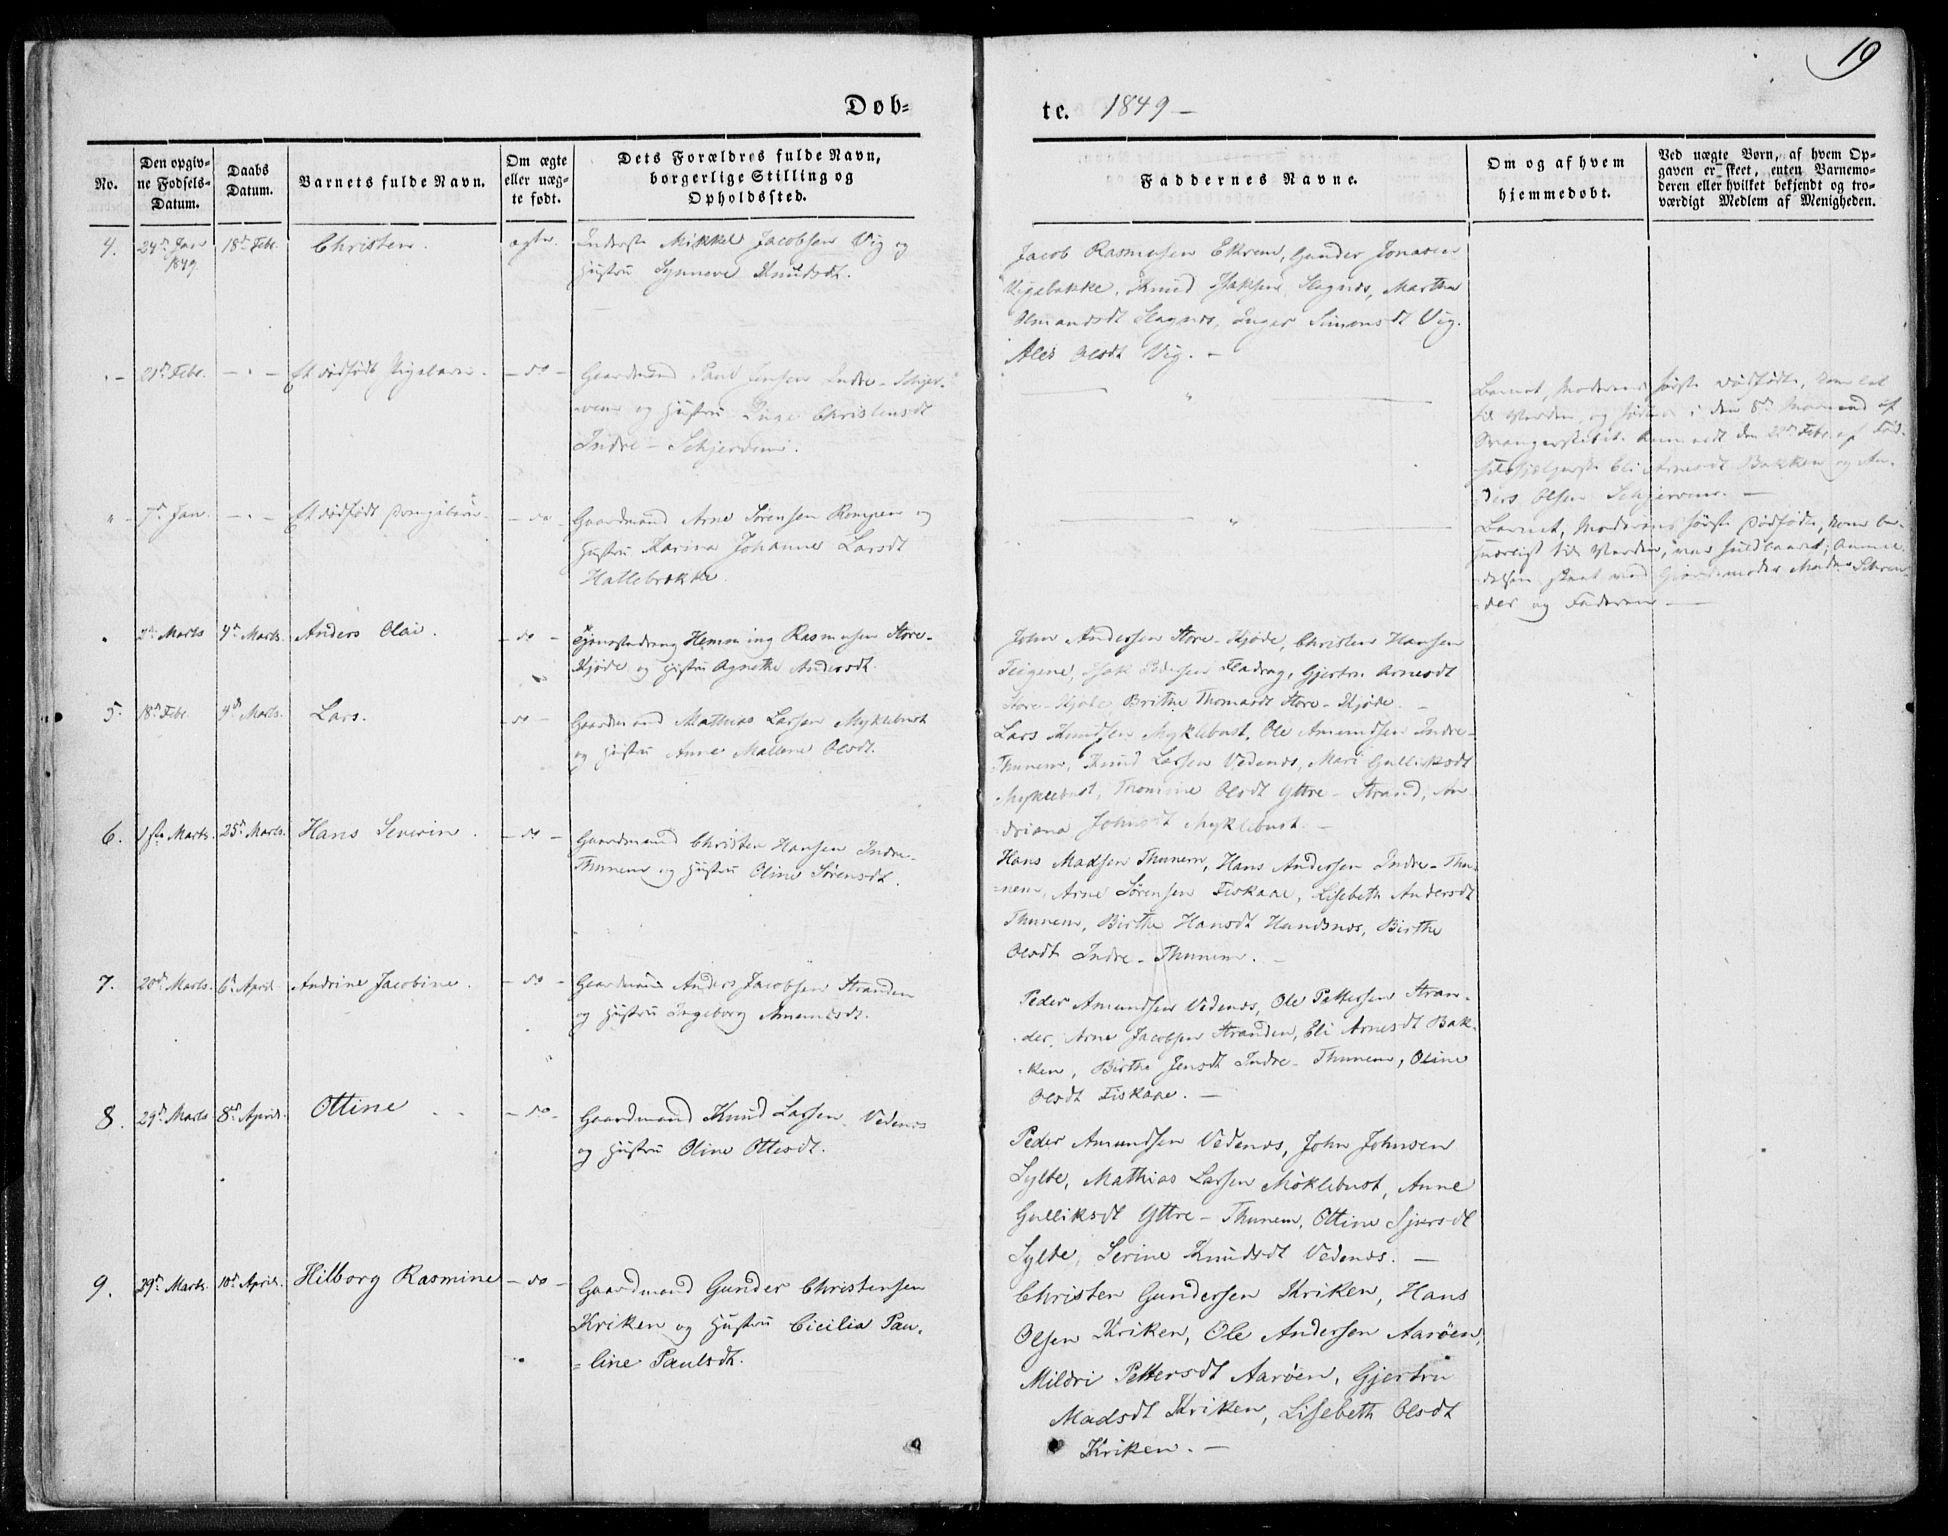 19
Døb=
te. 1849 –
No.
Den opgiv=
ne Fødsels=
Datum.
Daabs
Datum.
Barnets fulde Navn.
Om ægte
eller uæg=
te født.
Dets Forældres fulde Navn,
borgerlige Stilling og
Opholdssted.
Faddernes Navne.
Om og af hvem
hjemmedøbt.
Ved uægte Børn, af hvem Op=
gaven er skeet, enten Barnemo=
deren eller hvilket bekjendt og tro=
værdigt Medlem af Menigheden.
4. 24de Jan 1849. 18de Febr. Christen. ægte.
Inderste Mikkel Jacobsen Vig og
Hustru Synneve Knudsdt.
Jacob Rasmusen Ekrem, Gunder Jonasen
Vigebakke, Knud Slagnes, Marthe
Amundsdt Slagnes, Inger Simonsdt Vig.
Ales Olsdt Vig. –
21de Febr. – " – Et dødfødt Pigebarn. – do –
Gaardmand Paul Jensen Indre-Schjer-
vene og Hustru Inge Christensdt
Indre-Schjerven.
Barnet, Moderens første dødfødte, kom let
til Verden, og i den 8de Maaned af
Svangerskabet. Anmeldt den 22de Febr. af Fød-
selshjelperske Eli Arnesdt Bakken og An-
ders Olsen Schjervene. –
" – 7de Jan. – " – Et dødfødt Drengebarn. – do –
Gaardmand Arne Sørensen Rempem og
Hustru Karina Johanne Larsdt
Hattebrække.
Barnet, Moderens første Dødfødte, kom be-
sværligt til Verden, var fuldbaaret; Anmel-
delsen skeet ved Gjordemoder Mad. Schrøn-
der og Faderen –
2de Marts 4de Marts. Anders Olai. – do –
Tjenestedreng Hemming Rasmusen Store-
Hjøde og Hustru Agnethe Andersdt.
John Andersen Store-Hjøde, Christen Hansen
Teigene, Isak Pedersen Fladvag, Gjertru Arnesdt
Store-Hjøde, Brithe Thomasdt Store-Hjøde. –
5. 18de Febr. 4de Marts. Lars. – do –
Gaardmand Mathias Larsen Myklebust
og Hustru Anne Malene Olsdt.
Lars Knudsen Myklebust, Ole Amundsen Indre-
Thunem, Knud Larsen Vedenes, Mari Gulliksdt
Myklebust, Thomine Olsdt Yttre-Strand, An-
driana Johnsdt Myklebust. –
6. 1ste Marts. 25de Marts. Hans Severin. – do –
Gaardmand Christen Hansen Indre-
Thunem og Hustru Oline Sørensdt.
Hans Madsen Thunem, Hans Andersen Indre-Thu-
nem, Arne Sørensen Fiskaae, Lisebeth Andersdt
Thunem, Birthe Hansdt Hundsnes, Birthe
Olsdt Indre-Thunem. –
7. 20de Marts. 6te April. Andrine Jacobine. – do –
Gaardmand Anders Jacobsen Stranden
og Hustru Ingeborg Amundsdt.
Peder Amundsen Vedenes, Ole Pettersen Stran-
der, Arne Jacobsen Stranden, Eli Arnesdt Bak-
ken, Birthe Jensdt Indre-Thunem, Oline
Olsdt Fiskaae. –
8. 29de Marts 8de April. Ottine – do –
Gaardmand Knud Larsen Vedenes
og Hustru Oline Ottesdt.
Peder Amundsen Vedenes, John Johnsen
Sylte, Mathias Larsen Møklebust, Anne
Gulliksdt Yttre-Thunem, Ottine Sjursdt
Sylte, Serine Knudsdt Vedenes. –
9. 29de Marts. 10de April. Hilborg Rasmine – do –
Gaardmand Gunder Christensen
Kriken og Hustru Cicilia Pau-
line Paulsdt.
Christen Gundersen Kriken, Hans
Olsen Kriken, Ole Andersen Aarøen,
Mildri Pettersdt Aarøen, Gjertru
Madsdt Kriken, Lisebeth Olsdt
Kriken. –